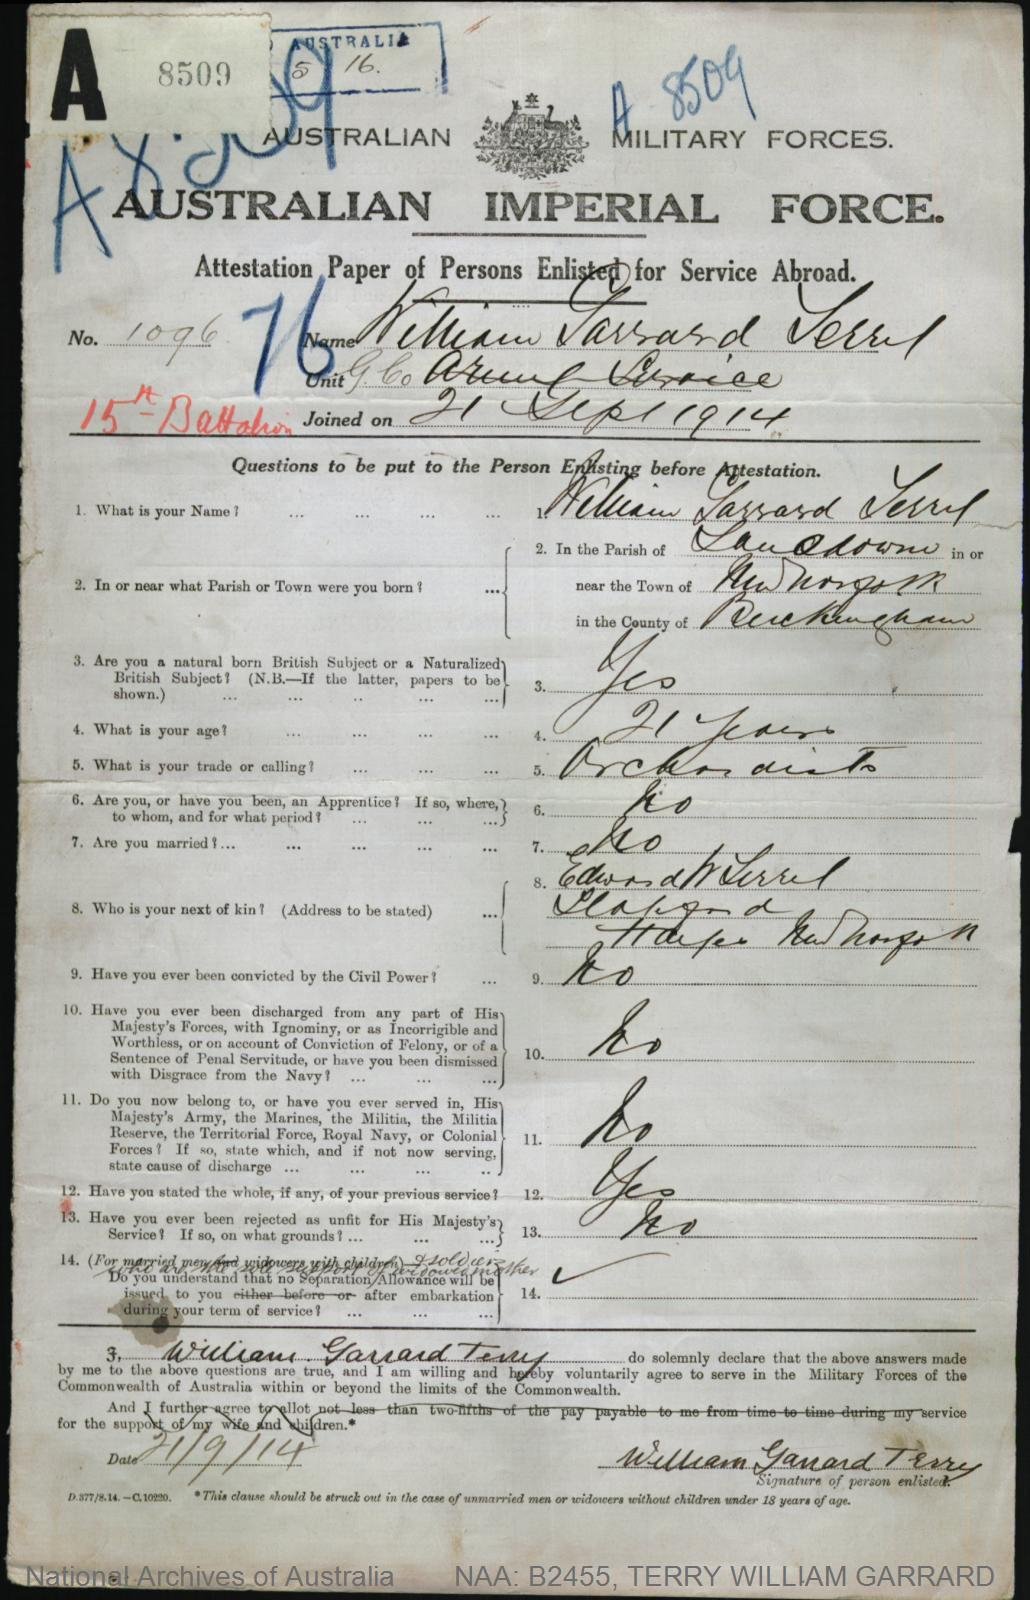 A 8509
AUSTRALIA
5 16.
A 8509
A 8509
AUSTRALIAN MILITARY FORCES.
AUSTRALIAN IMPERIAL FORCE.
Attestation Paper of Persons Enlisted for Service Abroad.
No. 1096 76 Name William Garrard Terry
Unit G. Co Army Service
15th Battalion Joined on 21 Sept 1914
Questions to be put to the Person Enlisting before Attestation.
1. What is your Name? ... ... ... ... 1. William Garrard Terry
2. In or near what Parish or Town were you born? ... 2. In the Parish of Lansdowne in or
near the Town of New Norfolk
in the County of Buckingham
3. Are you a natural born British Subject or a Naturalized
British Subject? (N.B.—If the latter, papers to be
shown.) ... ... .. ... ... 3. Yes
4. What is your age? ... ... ... ... 4. 21 years
5. What is your trade or calling? ... ... ... 5. Orchardist
6. Are you, or have you been, an Apprentice? If so, where,
to whom, and for what period? ... ... ... 6. No
7. Are you married?... ... ... ... ... 7. No
8. Who is your next of kin? (Address to be stated) ... 8. Edward W Terry
New Norfolk
9. Have you ever been convicted by the Civil Power? ... 9. No
10. Have you ever been discharged from any part of His
Majesty's Forces, with Ignominy, or as Incorrigible and
Worthless, or on account of Conviction of Felony, or of a
Sentence of Penal Servitude, or have you been dismissed
with Disgrace from the Navy? ... ... ... 10. No
11. Do you now belong to, or have you ever served in, His
Majesty's Army, the Marines, the Militia, the Militia
Reserve, the Territorial Force, Royal Navy, or Colonial
Forces? If so, state which, and if not now serving,
state cause of discharge ... ... ... .. 11. No
12. Have you stated the whole, if any, of your previous service? 12. Yes
13. Have you ever been rejected as unfit for His Majesty's
Service? If so, on what grounds? ... ... ... 13. No
14. (For married men and widowers with children & soldiers
who are the sole support of widowed mother
Do you understand that no Separation Allowance will be
issued to you either before or after embarkation
during your term of service? ... ... ... 14. ✓
I, William Garrard Terry do solemnly declare that the above answers made
by me to the above questions are true, and I am willing and hereby voluntarily agree to serve in the Military Forces of the
Commonwealth of Australia within or beyond the limits of the Commonwealth.
And I further agree to allot not less than two-fifths of the pay payable to me from time to time during my service
for the support of my wife and children.*
Date 21/9/14 William Garrard Terry
Signature of person enlisted.
D.377/8.14.—C.10220. *This clause should be struck out in the case of unmarried men or widowers without children under 18 years of age.
National Archives of Australia NAA: B2455, TERRY WILLIAM GARRARD